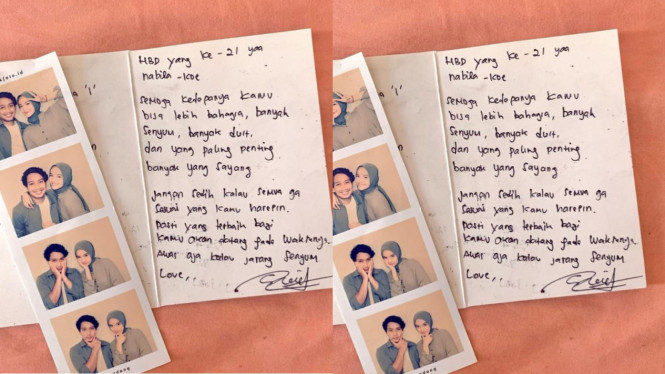 HBD yang ke - 21 yaa
nabila -koe
semoga kedepanya kamu
bisa lebih bahagia, banyak
senyum, banyak duit.
dan yang paling penting
banyak yang sayang
jangan sedih kalau semua ga
sesuai yang kamu harepin.
pasti yang terbaik bagi
kamu akan datang pada waktunya.
awas aja kalau jarang senyum
Love,.
HBD yang ke - 21 yaa
nabila -koe
semoga kedepanya kamu
bisa lebih bahagia, banyak
senyum, banyak duit.
dan yang paling penting
banyak yang sayang
jangan sedih kalau semua ga
sesuai yang kamu harepin.
pasti yang terbaik bagi
kamu akan datang pada waktunya.
awas aja kalau jarang senyum
Love,.